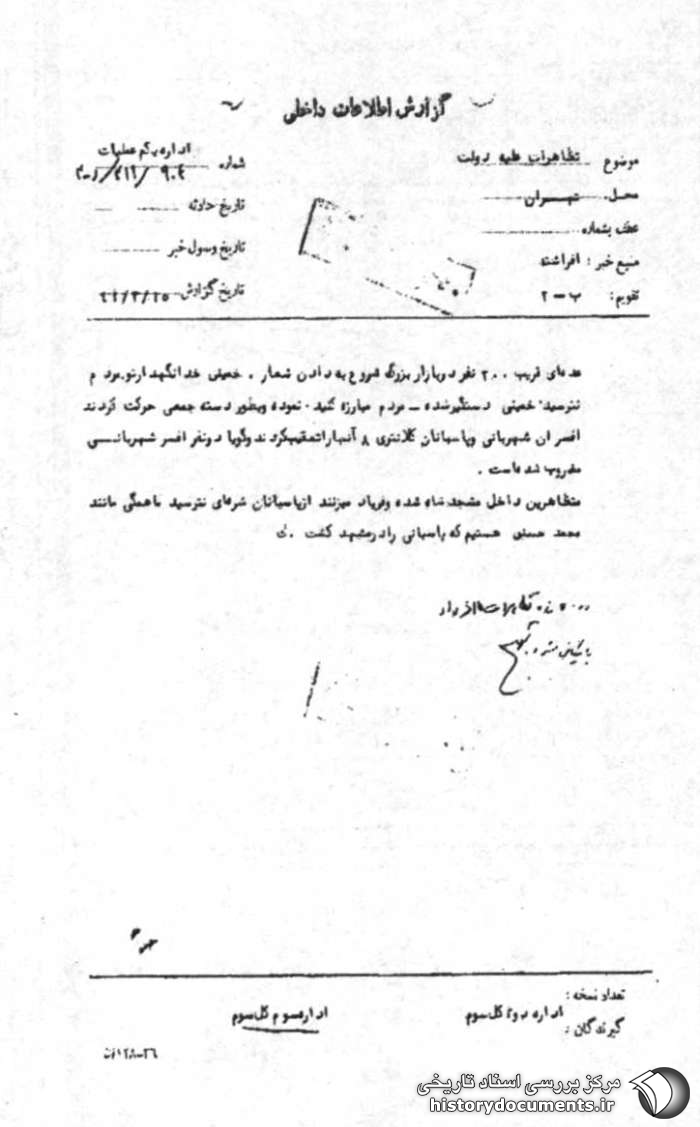 گزارش اطلاعات داخلی
موضوع تظاهرات علیه دولت
محل تهران
عطف بشماره
منبع خبر : افراشته
تقویم : ب - ۲
شماره اداره یکم عملیات
۹۰۴ / ۲۱۱ /
تاریخ حادثه
تاریخ وصول خبر
تاریخ گزارش ۴۲/۳/۱۵
عده‌ای قریب ۲۰۰ نفر دربازار بزرگ شروع به دادن شعار . خمینی خدانگهدارتو . مردم
نترسید . خمینی دستگیرشده - مردم مبارزه کنید . نموده وبطور دسته جمعی حرکت کردند
افسران شهربانی وپاسبانان کلانتری ۸ آنهاراتعقیب‌کردند وگویا دونفر افسر شهربانسی
مضروب شده‌است .
متظاهرین داخل مسجدشاه شده وفریاد میزنند ازپاسبانان شره‌ای نترسید ماهمگی مانند
محمد حسنی هستیم که پاسبانی رادرمشهد کشت . ک
تعداد نسخه :
گیرندگان :
اداره دوم کل سوم
اداره سوم کل سوم
مرکز بررسی اسناد تاریخی
historydocuments.ir